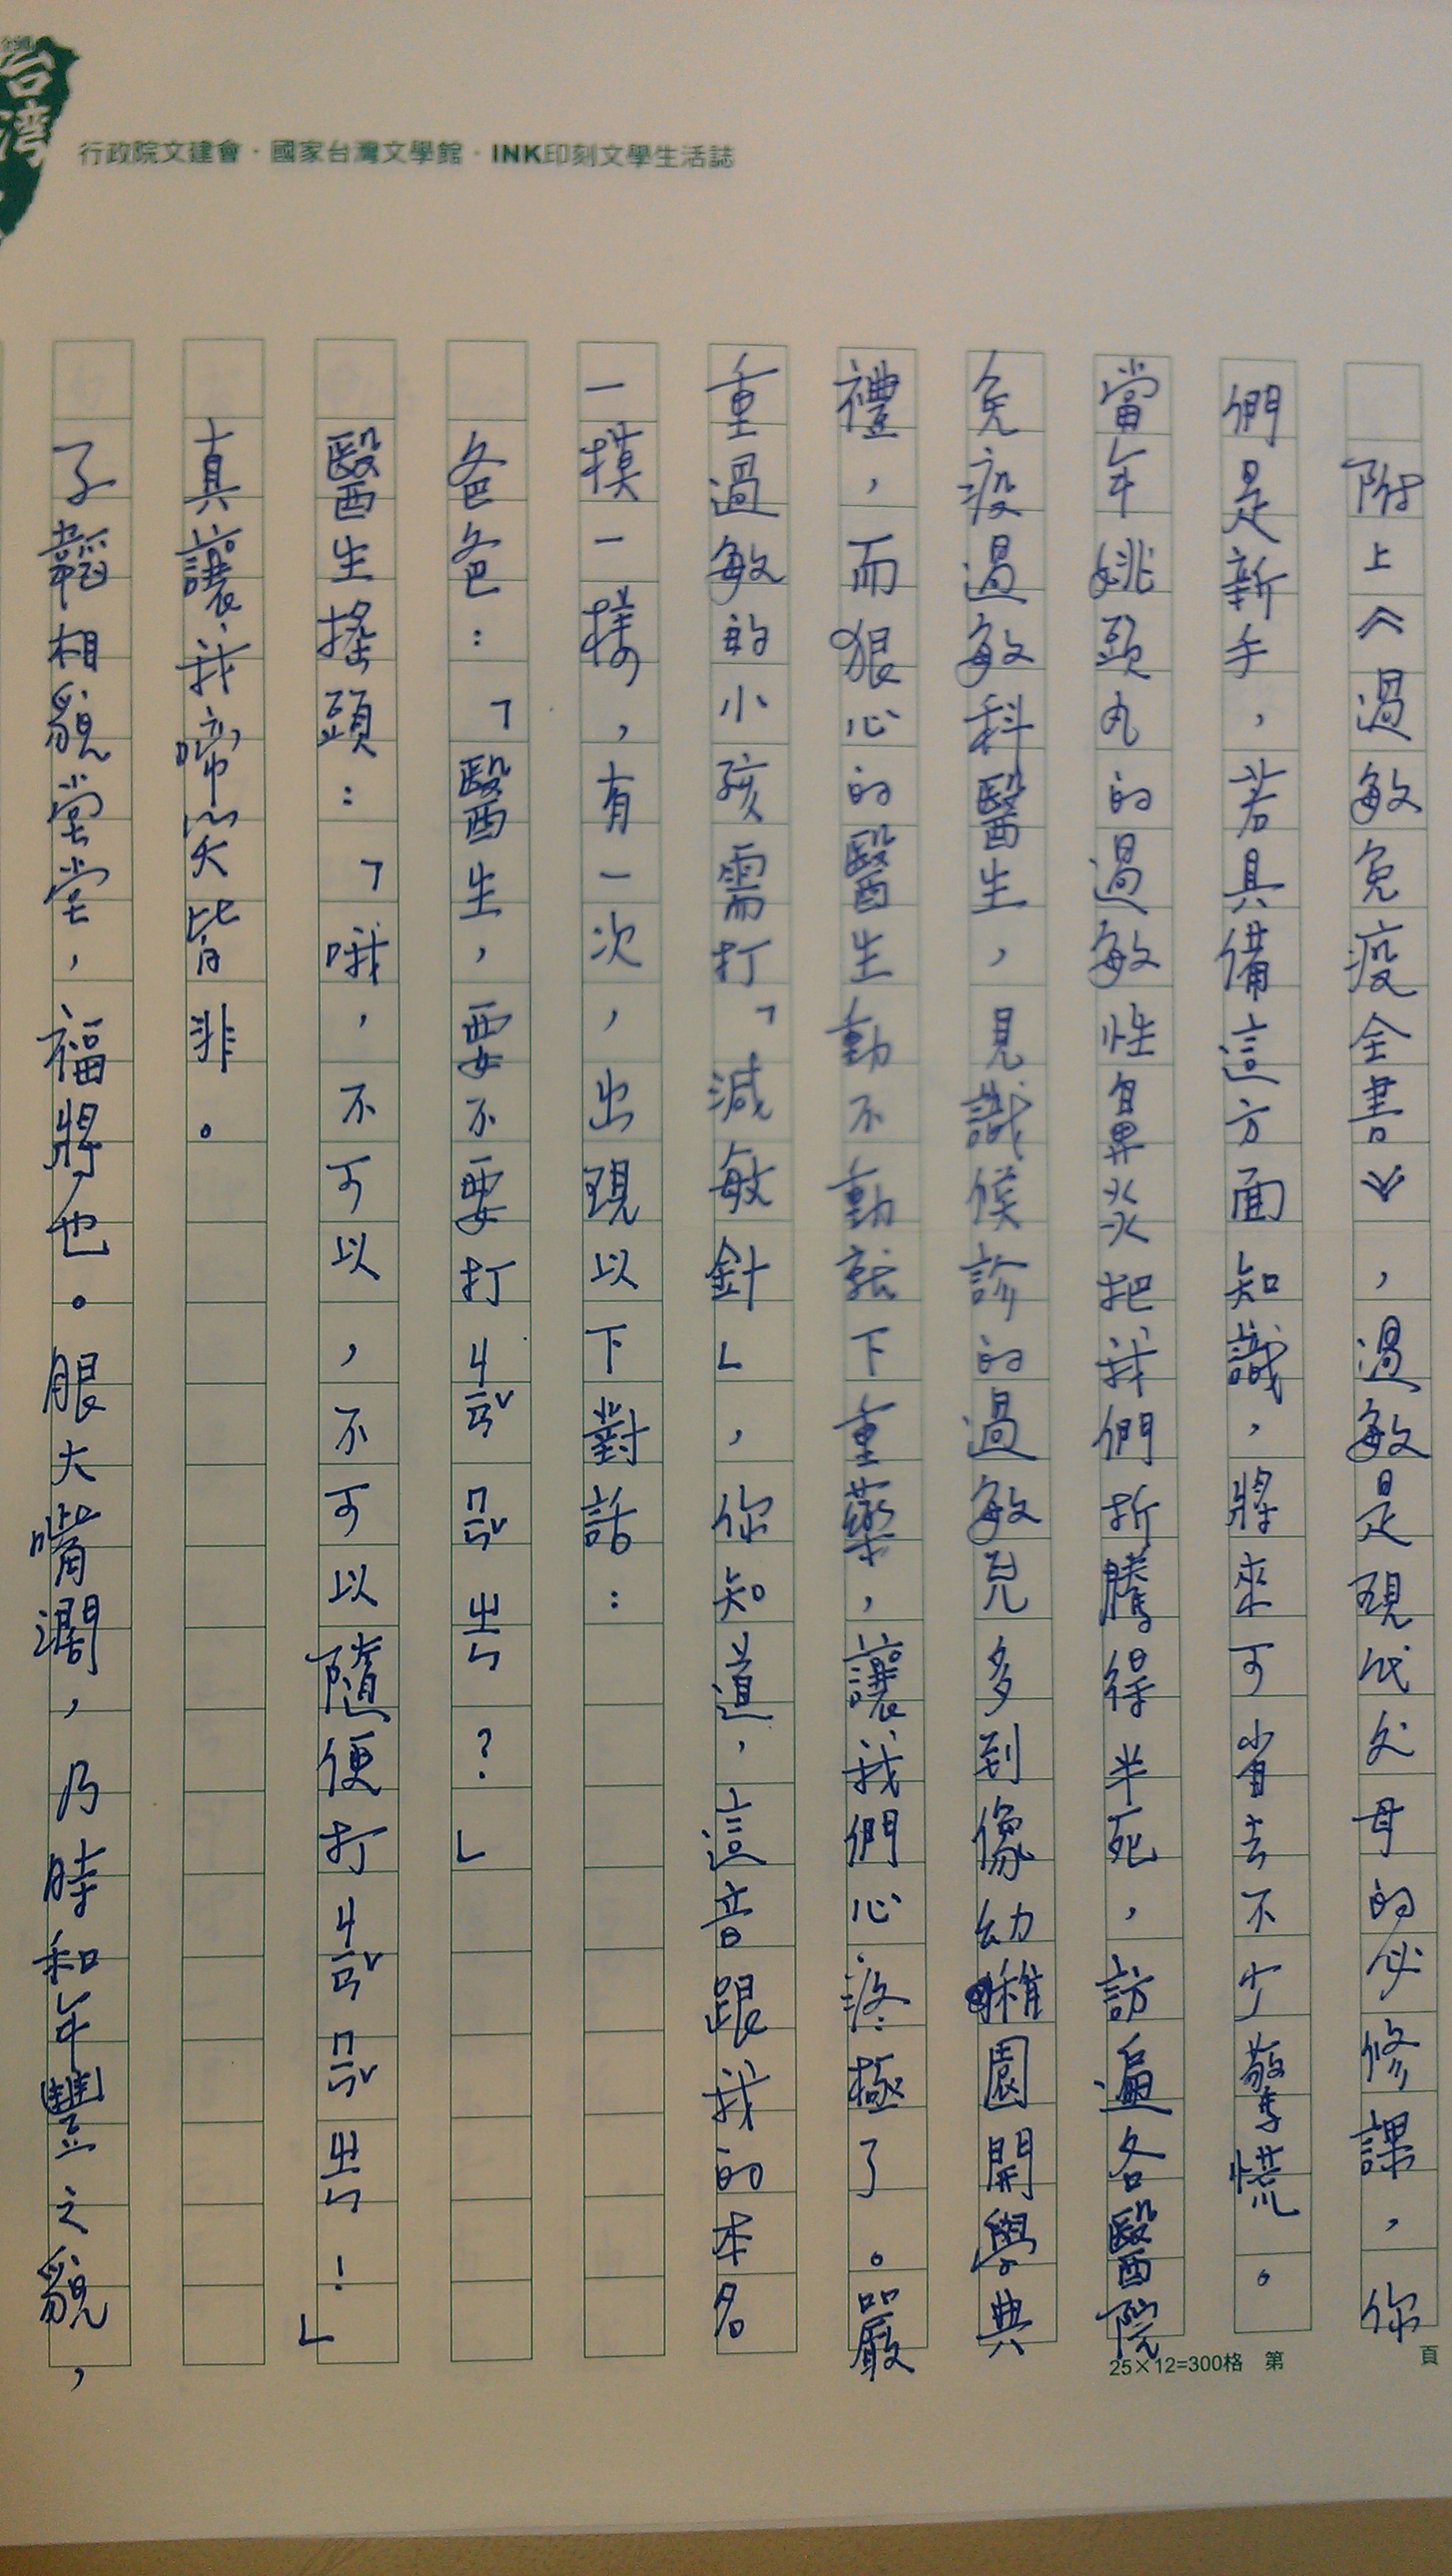 台灣
行政院文建會・國家台灣文學館・INK印刻文學生活誌
附上《過敏免疫全書》，過敏是現代父母的必修課，你
們是新手，若具備這方面知識，將來可省去不少驚慌。
當年姚頭丸的過敏性鼻炎把我們折騰得半死，訪遍各醫院
免疫過敏科醫生，見識候診的過敏兒多到像幼稚園開學典
禮，而狠心的醫生動不動就下重藥，讓我們心疼極了。嚴
重過敏的小孩需打「減敏針」，你知道，這音跟我的本名
一模一樣，有一次，出現以下對話：
爸爸：「醫生，要不要打ㄐㄧㄢˇㄇㄧㄣˇㄓㄣ？」
醫生搖頭：「哦，不可以，不可以隨便打ㄐㄧㄢˇㄇㄧㄣˇㄓㄣ！」
真讓我啼笑皆非。
子韜相貌堂堂，福將也。眼大嘴濶，乃時和年豐之貌，
25×12=300格 第 頁